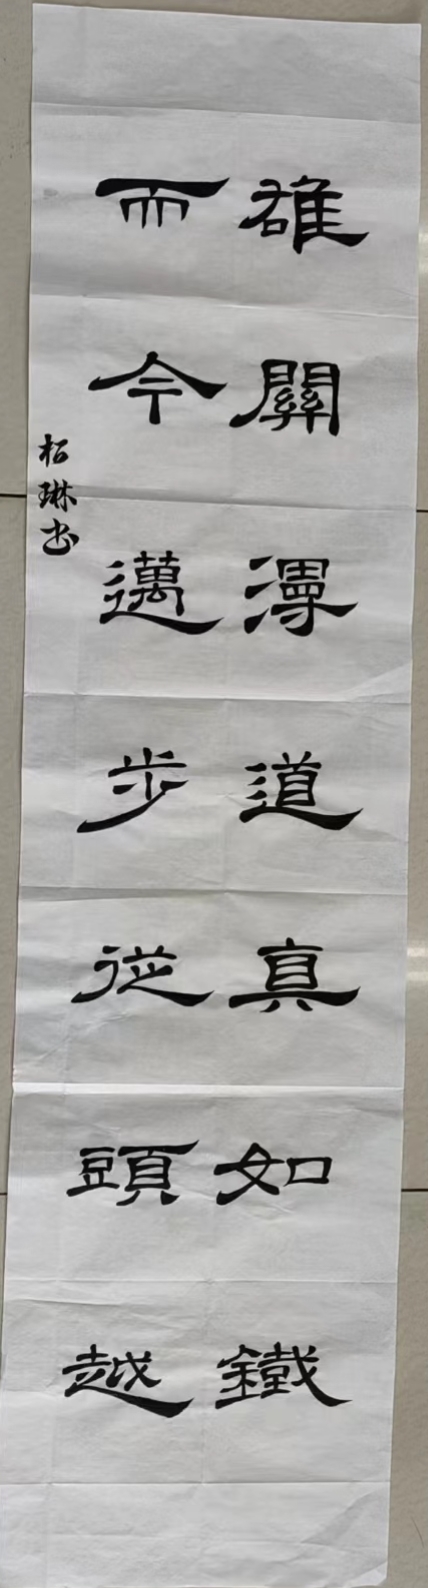 雄關漫道真如鐵
而今邁步從頭越
柏琳书